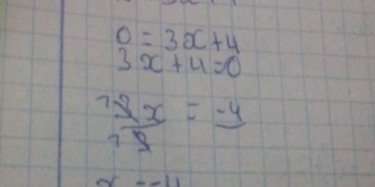 0 = 3x+4
3x+4=0
3x = -4
3
x = -4